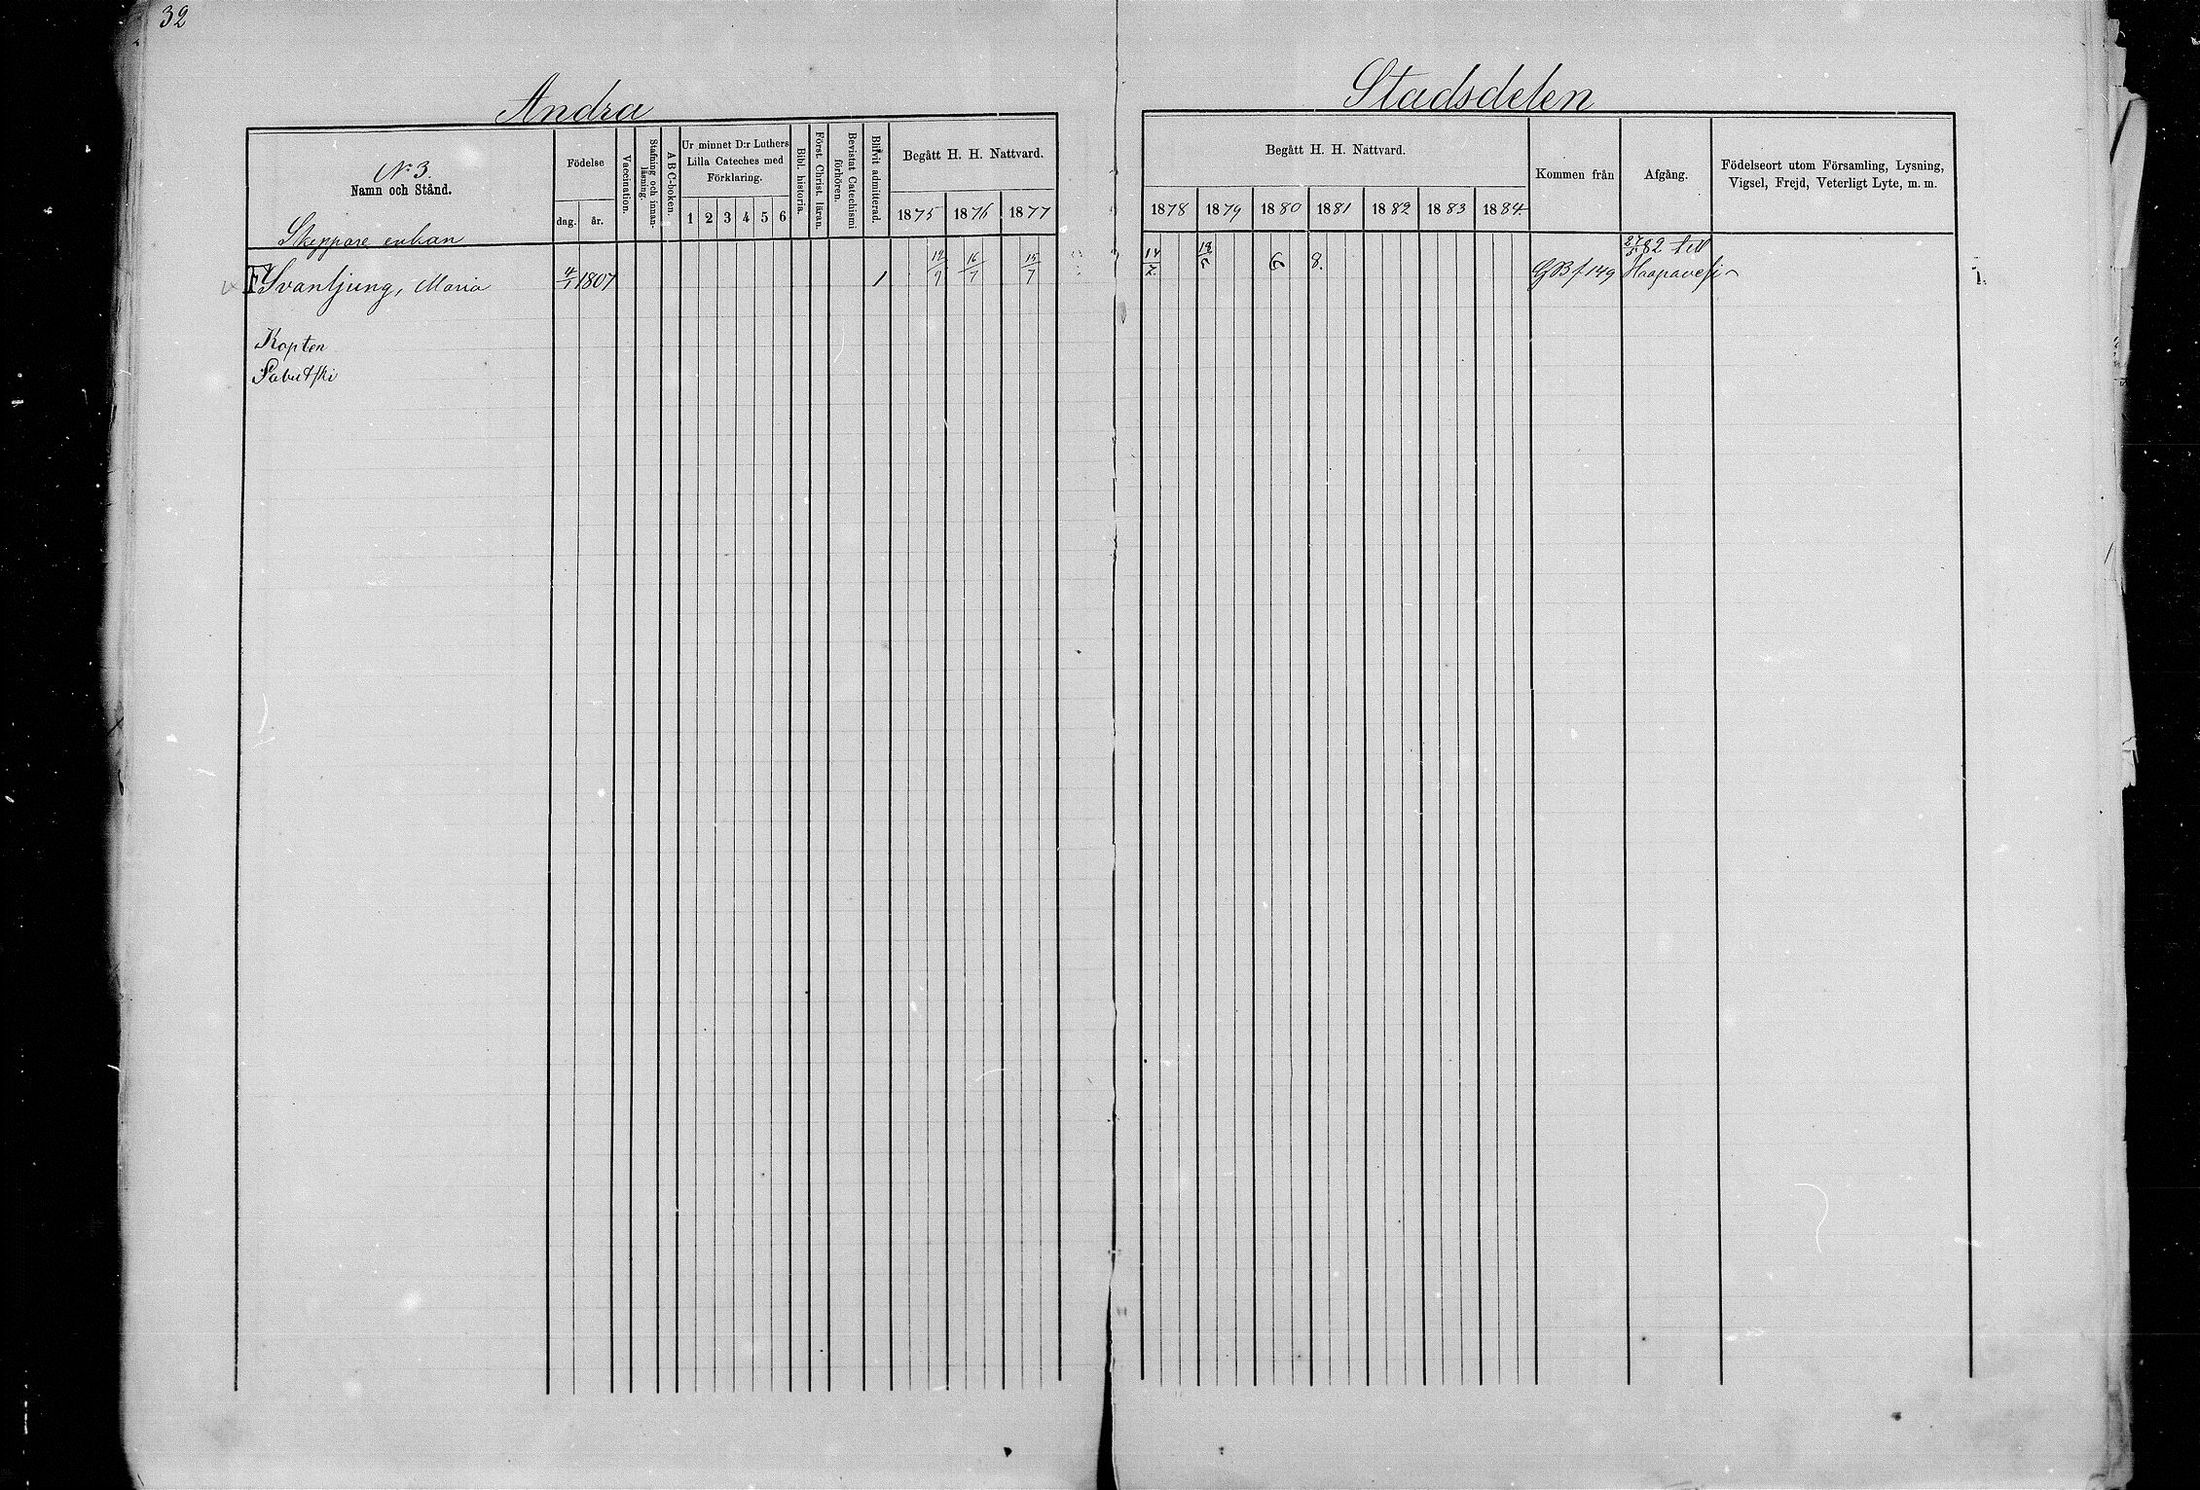 32
Andra
Stadsdelen
No 3.
Namn och Stånd.
Födelse
dag. år.
Vaccination.
Stafning och innanläsning.
A B C-boken.
Ur minnet D:r Luthers Lilla Cateches med Förklaring.
1 2 3 4 5 6
Bibl. historia.
Först. Christ. läran.
Bevistat Catechismi förhören.
Blifvit admitterad.
Begått H. H. Nattvard.
1875 1876 1877
Begått H. H. Nattvard.
1878 1879 1880 1881 1882 1883 1884
Kommen från
Afgång.
Födelseort utom Församling, Lysning, Vigsel, Frejd, Veterligt Lyte, m. m.
Skeppare enkan
Svanljung, Maria 4/1 1807 1 12/9 16/7 15/7 14/7 18/5 6 8. GB f 149 27/5 82 till Haapavesi
Kapten